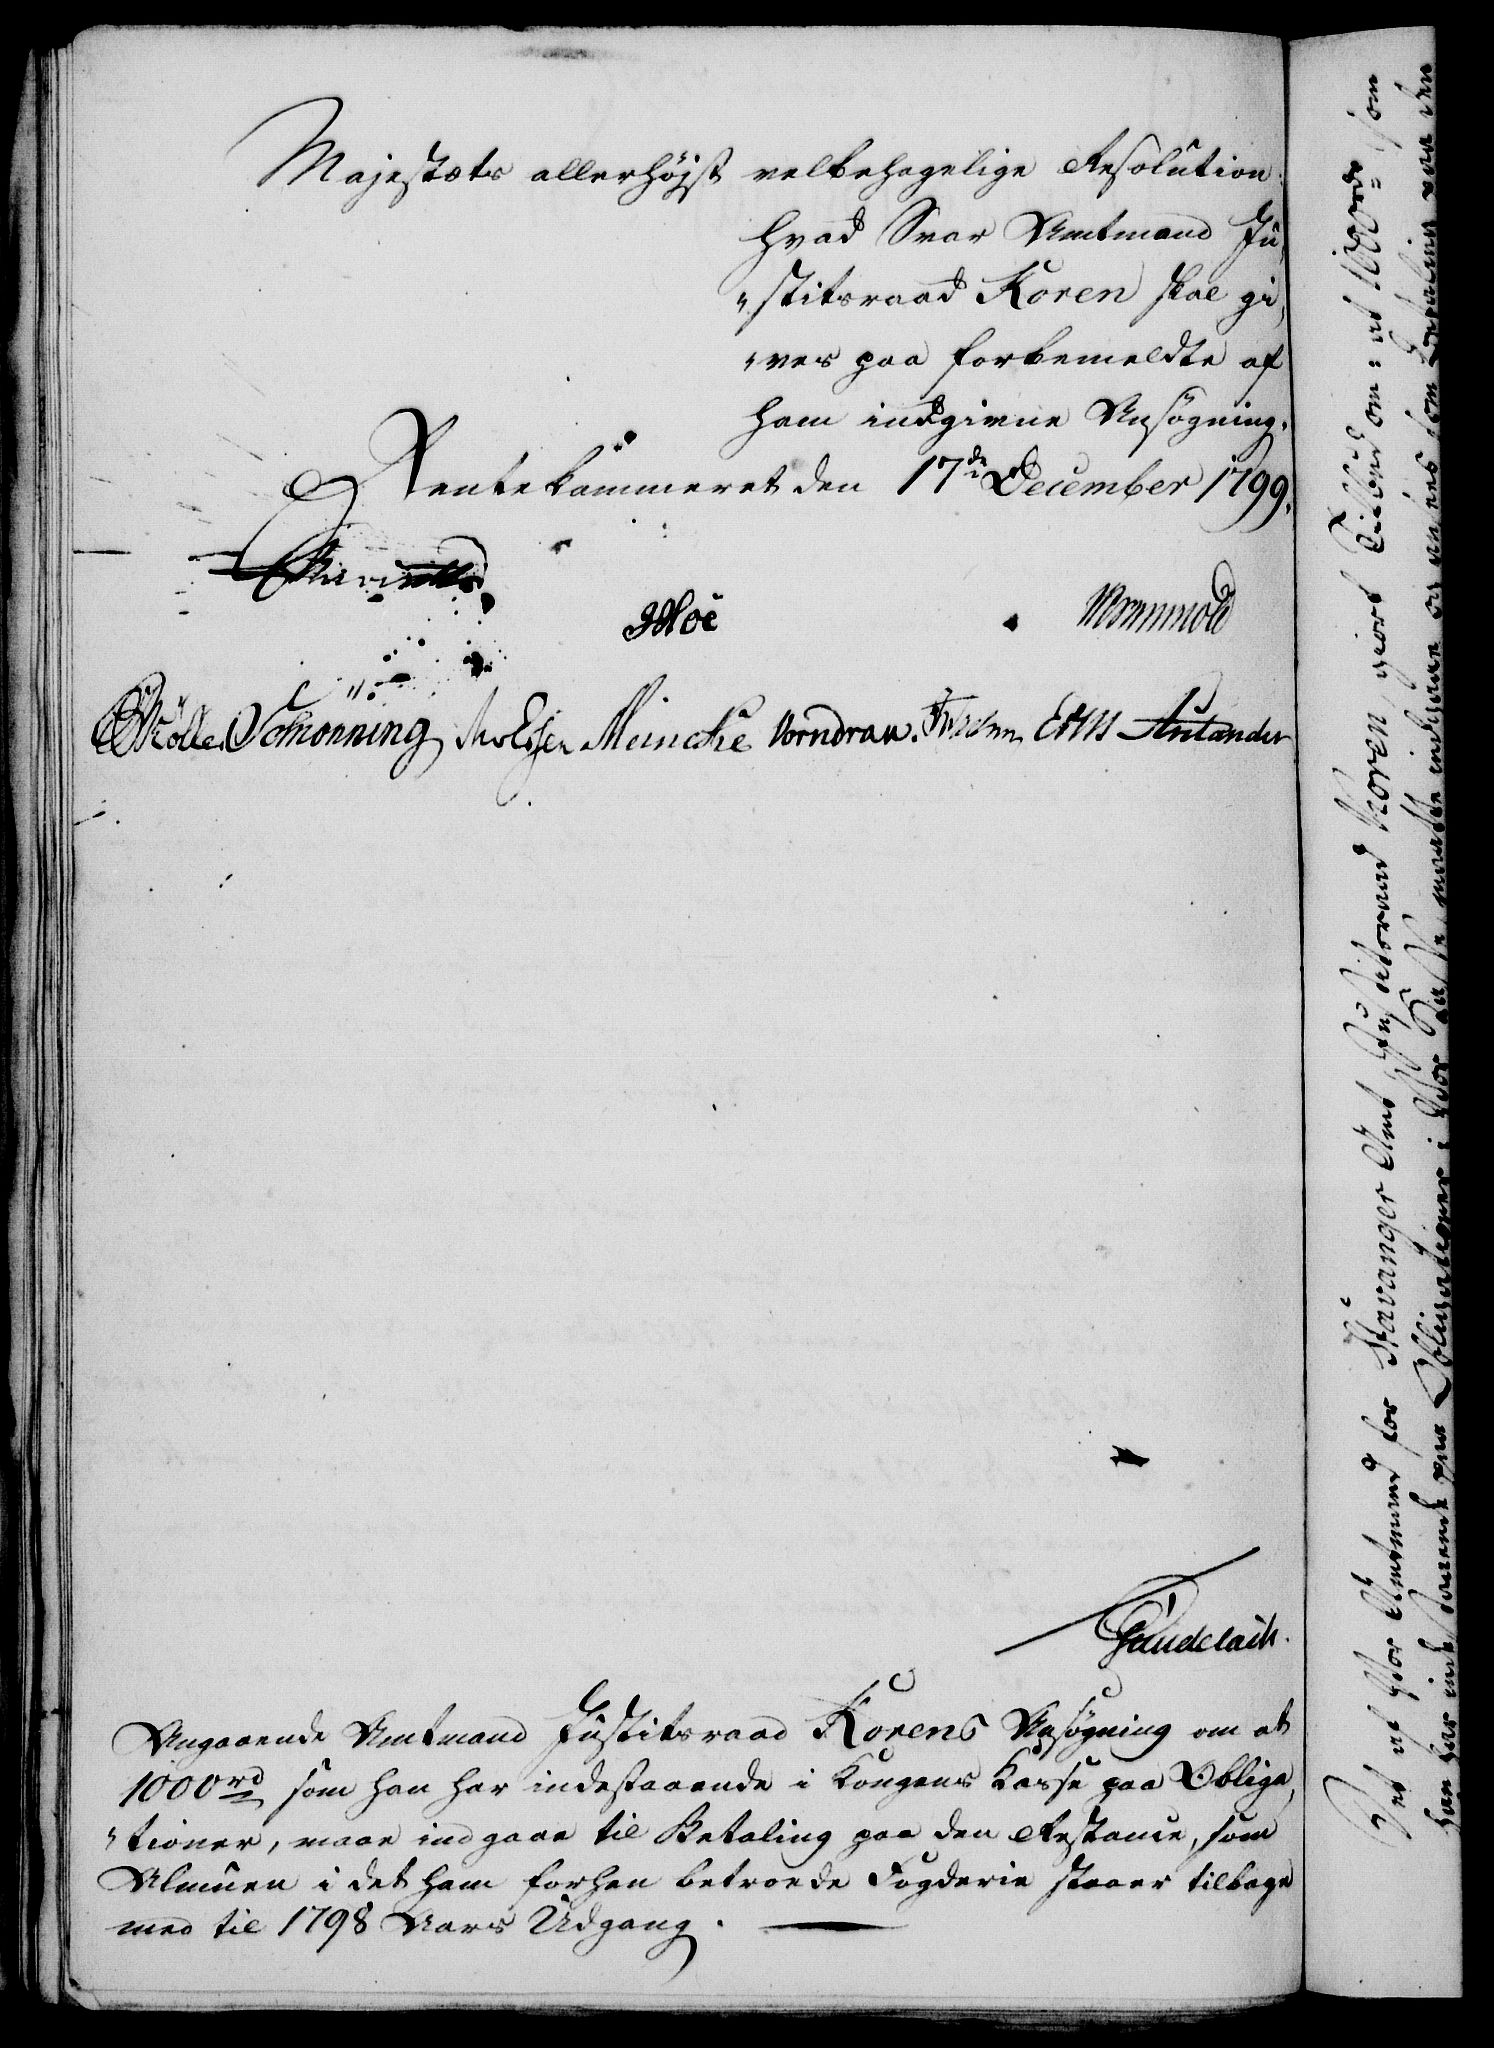 Majestæts allerhöjst velbehagelige Resolution:
hvad Svar Amtmand Ju,
"stitsraad Koren skal gi,
"ves paa forbemeldte af
ham indgivne Ansögning.
Rentekammeret den 17de December 1799.
JHoë Wormskiold
Mölle Schonning Meincke Vorndran.
Angaaende Amtmand Justitsraad Korens Ansøgning om at
1000rd som han har indestaaende i Kongens Kasse paa Obliga,
"tioner, maae indgaae til Betaling paa den Restance, som
Almuen i det ham forhen betroede Fogderie staaer tilbage
med til 1798 Aars Udgang.
Det af Vor Amtmand for Stavanger Amt Justitsraad Koren giort Tilbud om: at 1000rd som
han har indestaaende paa Obligationer i Vor Kasse maatte indgaae og ansees som Betaling paa den